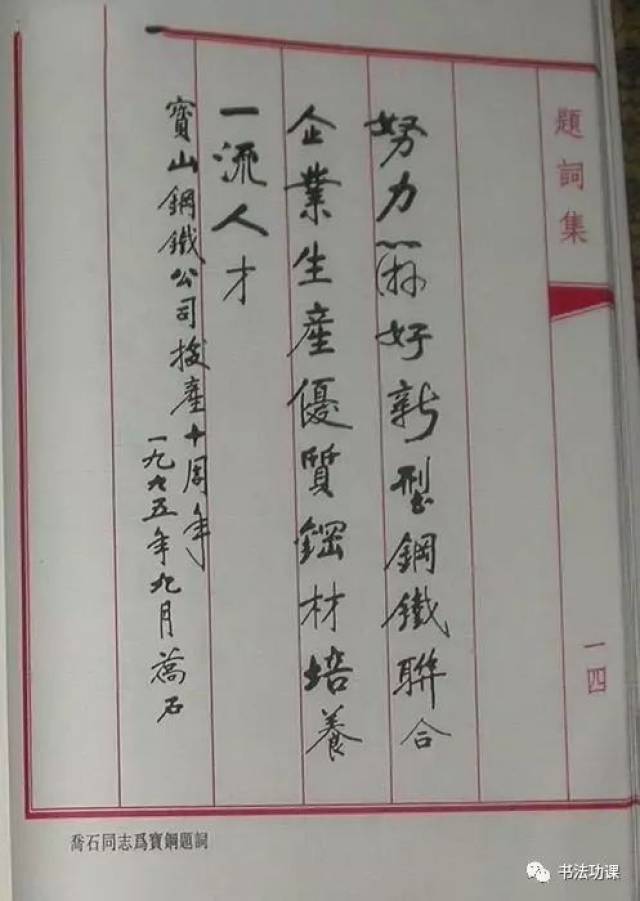 題詞集
一四
努力辦好新型鋼鐵聯合
企業生產優質鋼材培養
一流人才
寶山鋼鐵公司投產十周年
一九九五年九月喬石
喬石同志爲寶鋼題詞
书法功课